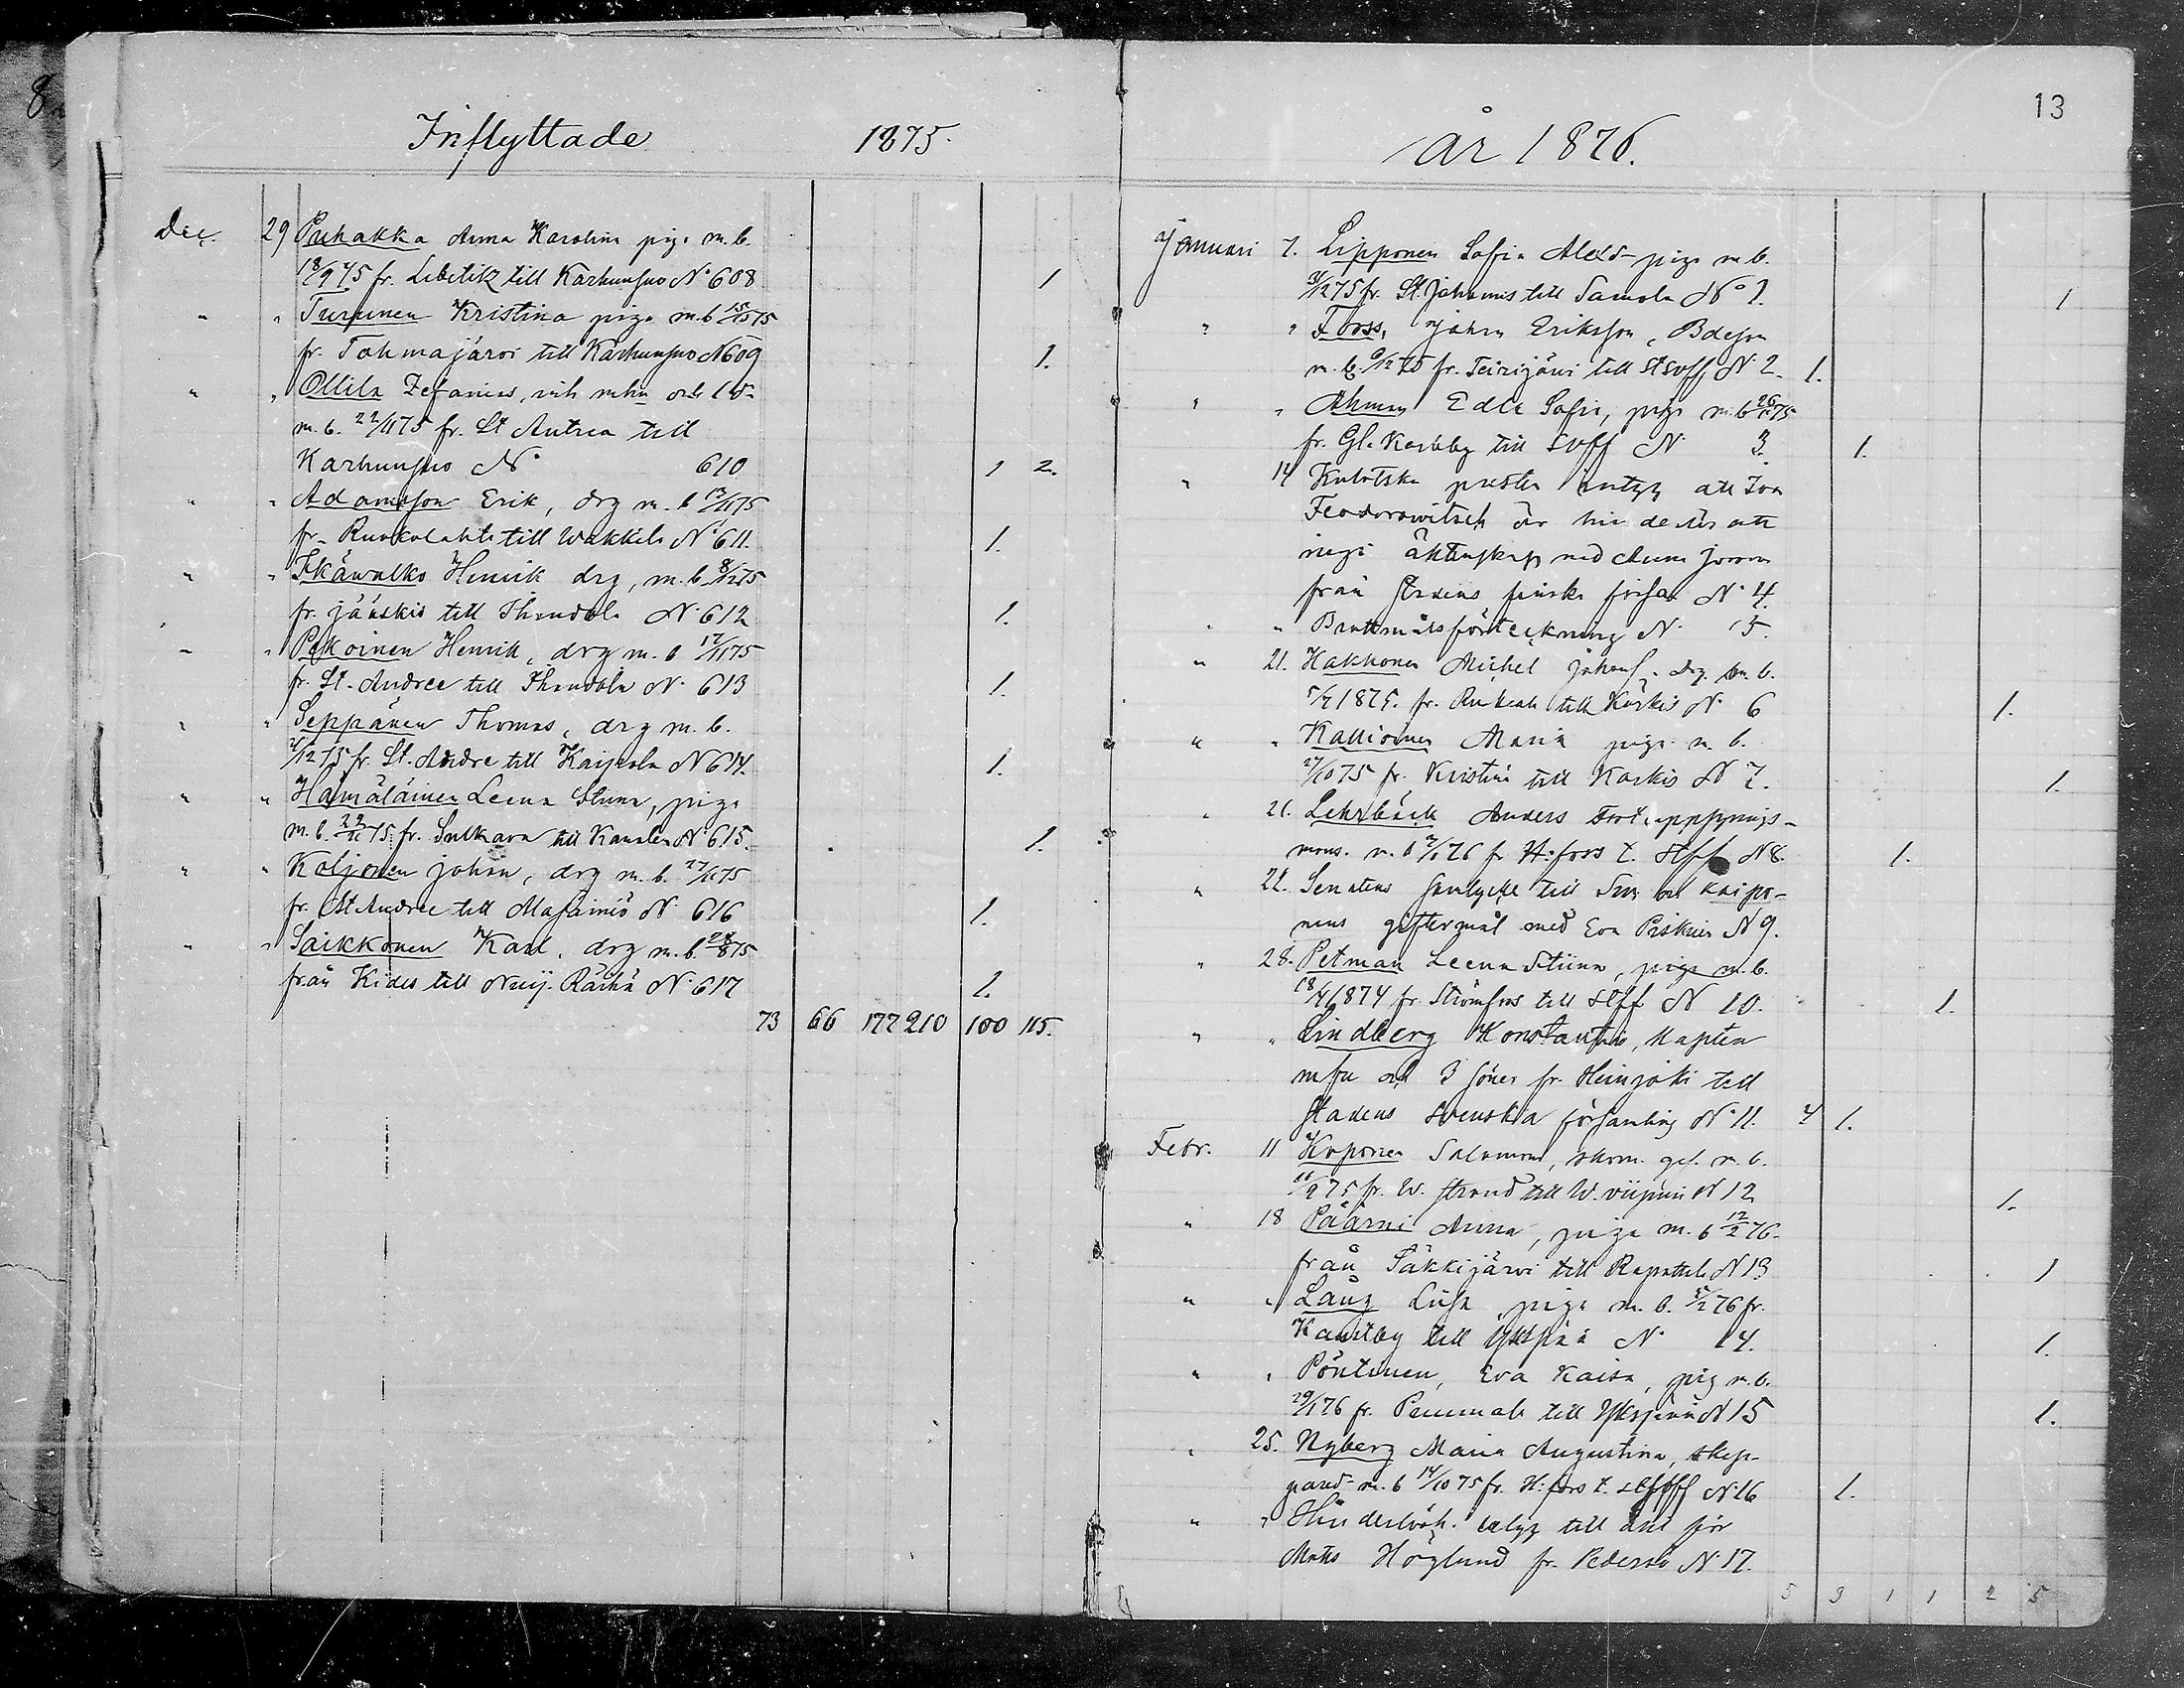 8
Inflyttade 1875.
Dec. 29 Puhakka Anna Karolina piga m.b.
18/9 75 fr. Libelitz till Karhunsuo No 608 1
" " Turunen Kristina piga m.b 15/10 75
fr. Tohmajärvi till Karhunsuo N 609 1.
" " Ollila Zefanias, m hu och 1 d-
m.b. 22/11 75 fr. St Andrea till
Karhunsuo No 610 1 2.
" " Adamsson Erik, drg m.b 13/11 75
fr. Ruokolahti till Wakkila No 611. 1.
" " Ikäwalko Henrik drg, m.b. 8/12 75
fr. Jääskis till Ihandola No 612 1.
" " Pekoinen Henrik, drg m.b 12/11 75
fr. St. Andree till Ihandola No 613 1.
" " Seppänen Thomas, drg m.b.
4/12 75 fr. St. Andre till Kaipola N 614. 1.
" " Hämäläinen Leena Stina, piga
m.b. 22/11 75 fr. Sulkava till N 615. 1.
" " Koljonen Johan, drg m.b. 27/11 75
fr. St Andree till N. 616 1.
" " Saikkonen Karl, drg m.b. 28/8 75
från Kides till Näij. Räihä N. 617 1.
73 66 177 210 100 115.
13
År 1876.
Januari 7. Lipponen Sofia Alexd- piga m.b.
3/12 75 fr. St. Johannis till Samola No 1. 1
" " Forss, Johan Eriksson, Bdeson
m.b. 9/12 75 fr. Terijärvi till N 2. 1.
" " Ahman Edla Sofia, piga m.b 26/11 75
fr. Gl. Karleby till svff N 3. 1.
" 14 prestens intyg att Ivan
Feodorowitsch är hinderlös att
ingå äktenskap med Anna
från stadens finska förs N. 4.
" " Brottmålsförteckning N. 5.
" 21. Hakkonen Michel Johans. drg m.b.
5/7 1875. fr. till Kärkis N. 6 1.
" " Kallioinen Maria piga m.b.
27/10 75 fr. Kristina till Karkis N 7. 1.
" 21. Lehrbäck Anders
mans. m.b 2/1 76 fr H:fors t. N 8. 1.
" 22. Senatens till
nens giftermål med Eva N 9.
" 28. Petman Leena Stiina, piga m.b.
18/4 1874 fr Strömfors till stff N 10. 1.
" " Lindberg Konstantin, Kapten
m fru och 3 söner fr. Heinjoki till
stadens svenska församling N. 11. 4 1.
Febr. 11 Koponen Salomon, skom. ges. m.b.
11/9 75 fr. W. strand till W. viipuri N 12 1.
" 18 Päärni Anna, piga m.b 12/2 76.
från Säkkijärvi till Rapattila N 13 1
" " Lang Liisa piga m.b. 5/2 76 fr.
till Ykspää N. 14. 1.
" " Pöntinen, Eva Kaisa, pig m.b.
29/1 76 fr. till Ykspää N 15 1.
" 25. Nyberg Maria Augustina, skep-
pared- m.b 14/10 75 fr. H:fors t. N. 16 1.
" " Hinderlösh. betyg till äkt för
Matts Höglund fr. Pedersö N. 17.
5 3 1 1 2 5